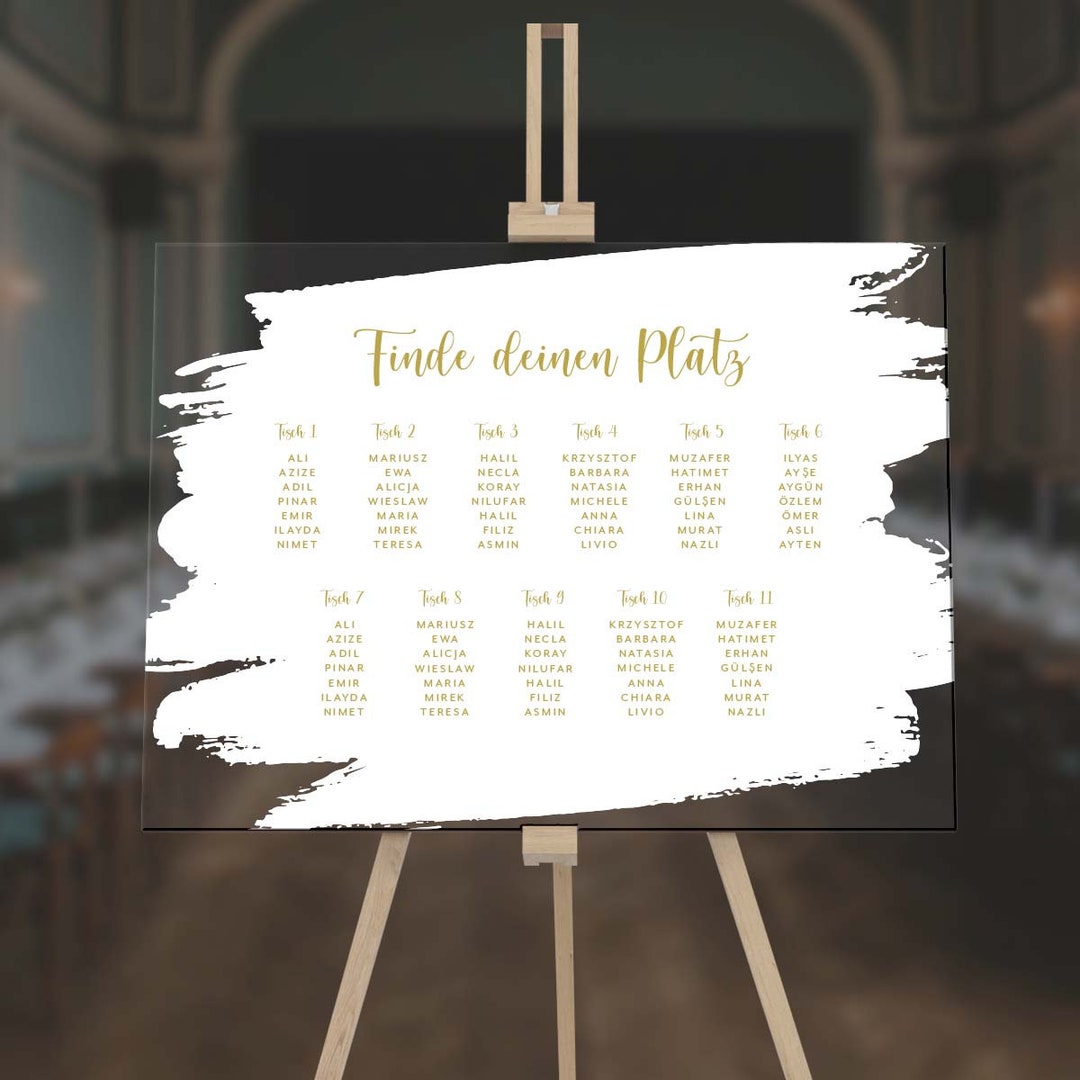 Finde deinen Platz
Tisch 1
ALI
AZIZE
ADIL
PINAR
EMIR
ILAYDA
NIMET
Tisch 2
MARIUSZ
EWA
ALICJA
WIESLAW
MARIA
MIREK
TERESA
Tisch 3
HALIL
NECLA
KORAY
NILUFAR
HALIL
FILIZ
ASMIN
Tisch 4
KRZYSZTOF
BARBARA
NATASIA
MICHELE
ANNA
CHIARA
LIVIO
Tisch 5
MUZAFER
HATIMET
ERHAN
GÜLŞEN
LINA
MURAT
NAZLI
Tisch 6
ILYAS
AYŞE
AYGÜN
ÖZLEM
ÖMER
ASLI
AYTEN
Tisch 7
ALI
AZIZE
ADIL
PINAR
EMIR
ILAYDA
NIMET
Tisch 8
MARIUSZ
EWA
ALICJA
WIESLAW
MARIA
MIREK
TERESA
Tisch 9
HALIL
NECLA
KORAY
NILUFAR
HALIL
FILIZ
ASMIN
Tisch 10
KRZYSZTOF
BARBARA
NATASIA
MICHELE
ANNA
CHIARA
LIVIO
Tisch 11
MUZAFER
HATIMET
ERHAN
GÜLŞEN
LINA
MURAT
NAZLI